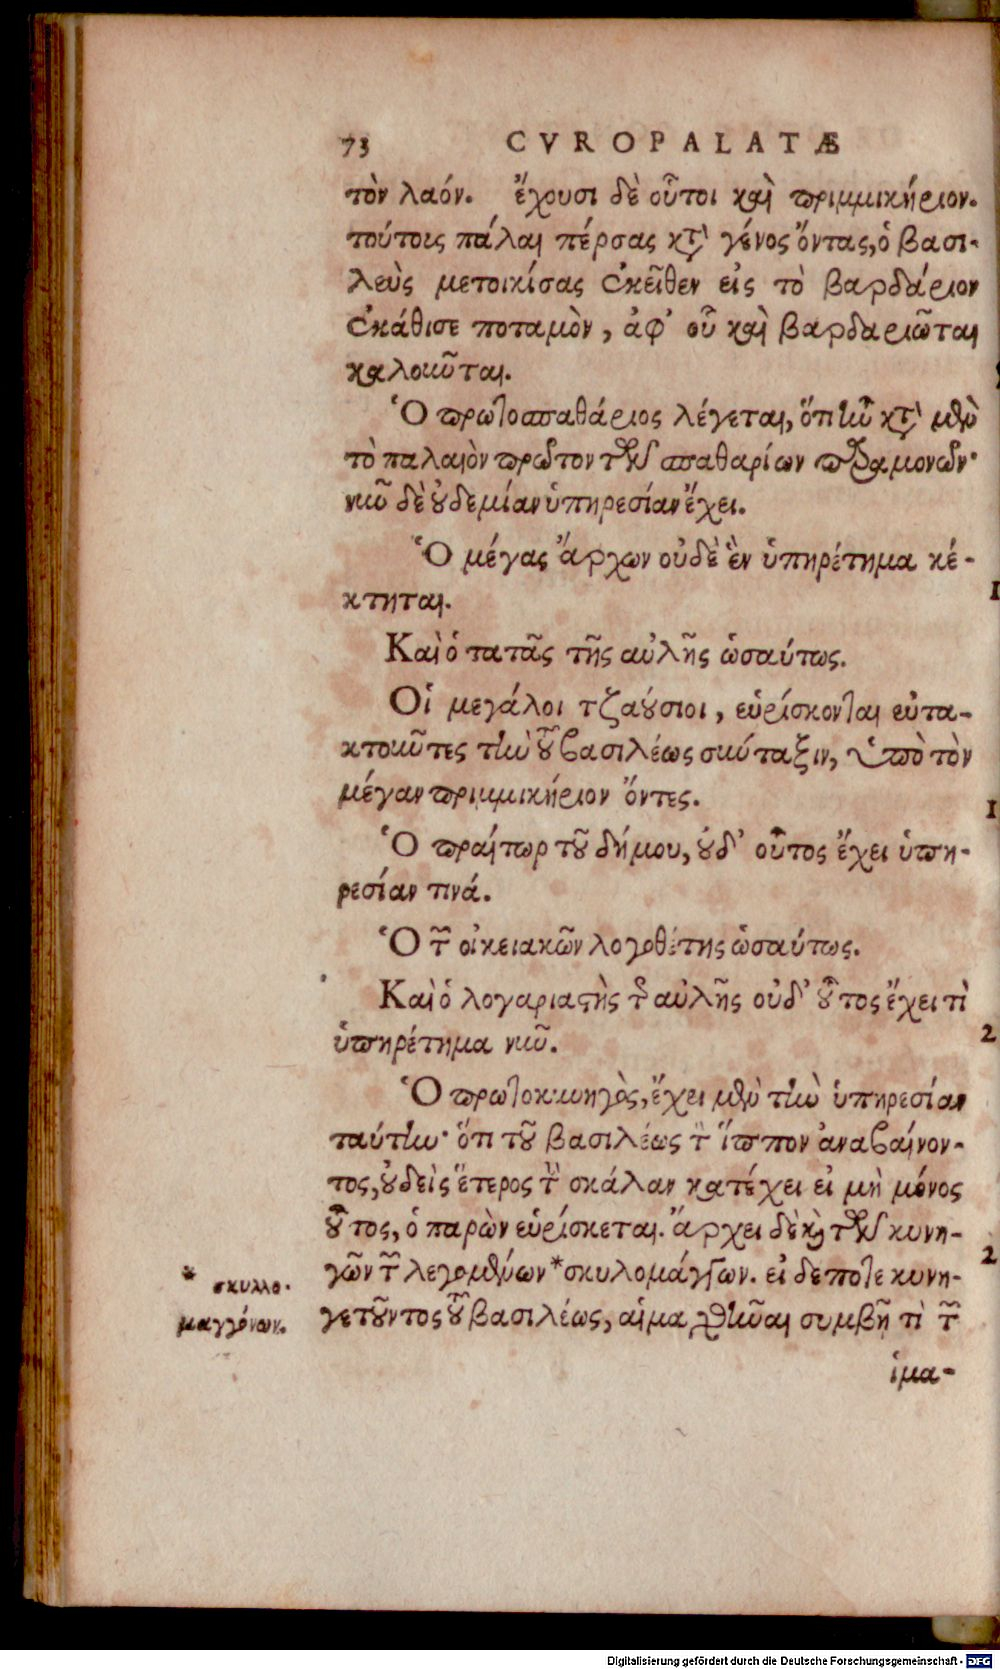 73 CVROPALATÆ
τὸν λαόν. ἔχουσι δὲ οὗτοι καὶ πριμμικήριον.
τούτοις πάλαι πέρσας κτ̀ γένος ὄντας, ὁ βασι-
λεὺς μετοικίσας ἐκεῖθεν εἰς τὸ βαρδάριον
ἐκάθισε ποταμὸν, ἀφ' οὗ καὶ βαρδαριῶται
καλοῦνται.
Ὁ πρωτοσπαθάριος λέγεται, ὅτι ἦν κτ̀ μὲν
τὸ παλαιὸν πρῶτον τῶν σπαθαρίων
νῦν δὲ οὐδεμίαν ὑπηρεσίαν ἔχει.
Ὁ μέγας ἄρχων οὐδὲ ἓν ὑπηρέτημα κέ-
κτηται.
Καὶ ὁ τατᾶς τῆς αὐλῆς ὡσαύτως.
Οἱ μεγάλοι τζαούσιοι, εὑρίσκονται εὐτα-
κτοῦντες τὴν τοῦ βασιλέως σύνταξιν, ὑπὸ τὸν
μέγαν πριμμικήριον ὄντες.
Ὁ πραίτωρ τοῦ δήμου, οὐδ' οὗτος ἔχει ὑπη-
ρεσίαν τινά.
Ὁ τῶν οἰκειακῶν λογοθέτης ὡσαύτως.
Καὶ ὁ λογαριαστὴς τῆς αὐλῆς οὐδ' οὗτος ἔχει τὶ
ὑπηρέτημα νῦν.
Ὁ πρωτοκυνηγὸς, ἔχει μὲν τὴν ὑπηρεσίαν
ταύτην· ὅτι τοῦ βασιλέως τὸν ἵππον ἀναβαίνον-
τος, οὐδεὶς ἕτερος τὴν σκάλαν κατέχει εἰ μὴ μόνος
οὗτος, ὁ παρὼν εὑρίσκεται. ἄρχει δὲ καὶ τῶν κυνη-
γῶν τῶν λεγομένων *σκυλομάγγων. εἰ δέποτε κυνη-
γετοῦντος τοῦ βασιλέως, αἱμαχθῆναι συμβῆ τὶ τῶν
ἱμα-
* σκυλλο-
μαγγόνων.
Digitalisierung gefördert durch die Deutsche Forschungsgemeinschaft - DFG